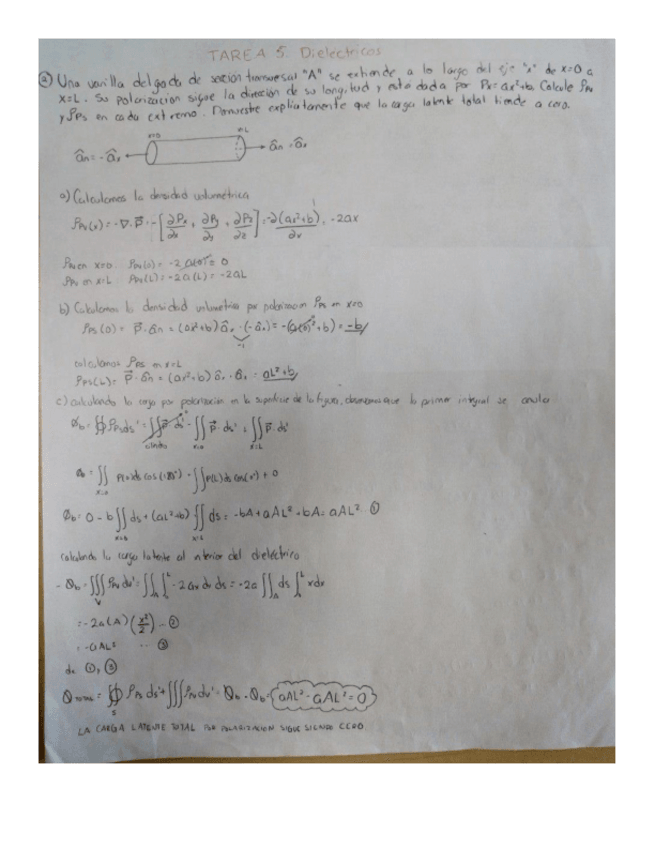 TAREA 5. Dielectricos
② Una varilla delgada de sección transversal "A" se extiende a lo largo del eje "x" de x=0 a
x=L. Su polarizacion sigue la dirección de su longitud y está dada por Px=ax²+b. Calcule ρpv
y ρps en cada extremo. Demuestre explicitamente que la carga latente total tiende a cero.
x=0 x=L
ân = -âx ân = âx
a) Calculamos la densidad volumétrica
ρpv(x) = -∇·P = -[∂Px/∂x, ∂Py/∂y, ∂Pz/∂z] = -∂(ax²+b)/∂x = -2ax
ρpv en x=0 ρpv(0) = -2a(0) = 0
ρpv en x=L ρpv(L) = -2a(L) = -2aL
b) Calculamos la densidad volumetrica por polarizacion ρps en x=0
ρps(0) = P·ân = (ax²+b)âx·(-âx) = -(a(0)²+b) = -b
-1
calculamos ρps en x=L
ρps(L) = P·ân = (ax²+b)âx·âx = aL²+b
c) calculando la carga por polarización en la superficie de la figura, observamos que la primer integral se anula
Qb = ∯ρps ds' = ∬P·ds' + ∬P·ds' + ∬P·ds'
x=0 x=L
Qb = ∬P(0)ds cos(180°) + ∬P(L)ds cos(0°) + 0
x=0
Qb = 0 - b∬ds + (aL²+b)∬ds = -bA + aAL² + bA = aAL² ①
x=0 x=L
Calculando la carga latente al interior del dieléctrico
- Qb = ∭ρpv dv' = ∬∫ -2ax dx ds = -2a∬ds∫xdx
= -2a(A)(x²/2) ... ②
= -aAL² ... ③
de ①, ③
Q total = ∯ρps ds' + ∭ρpv dv' = Qb - Qb = aAL² - aAL² = 0
LA CARGA LATENTE TOTAL POR POLARIZACION SIGUE SIENDO CERO